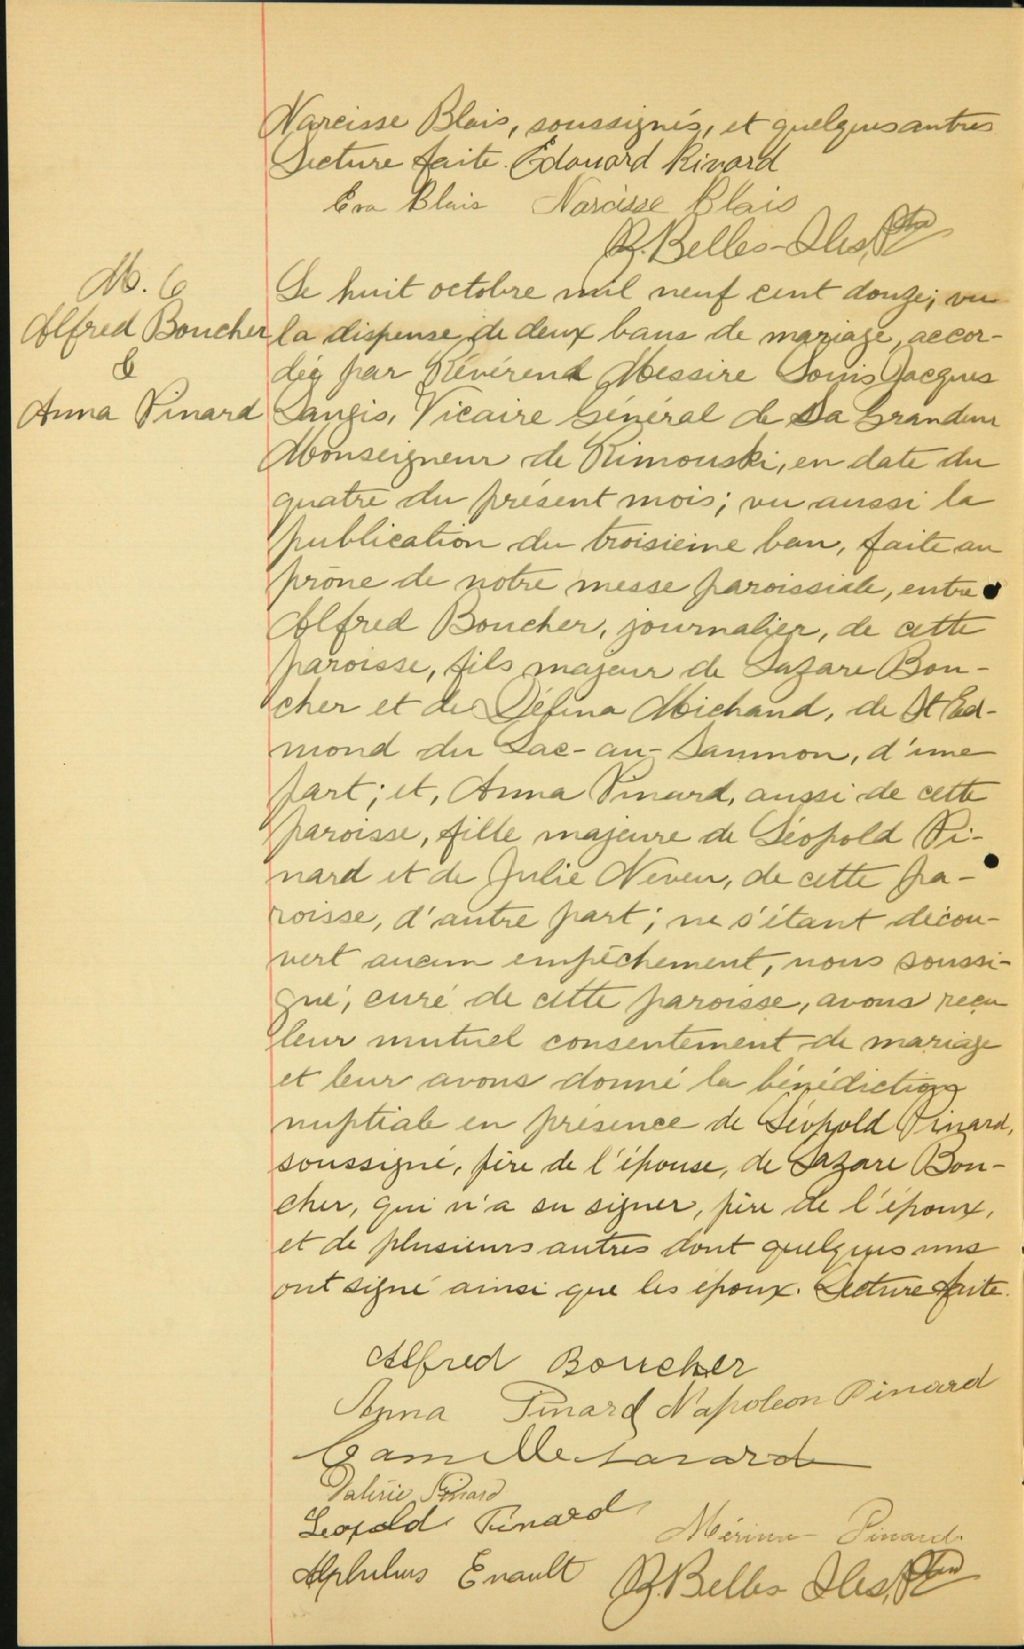 Narcisse Blais, soussignés, et quelques autres
Lecture faite. Edouard Rivard
Eva Blais Narcisse Blais
Z. Belles-Iles, Ptre
M. 6
Alfred Boucher
&
Anna Pinard
Le huit octobre mil neuf cent douze; vu
la dispense de deux bans de mariage, accor-
dée par Révérend Messire Louis Jacques
Langis, Vicaire Général de Sa Grandeur
Monseigneur de Rimouski, en date du
quatre du présent mois; vu aussi la
publication du troisième ban, faite au
prône de notre messe paroissiale, entre
Alfred Boucher, journalier, de cette
paroisse, fils majeur de Lazare Bou-
cher et de Défina Michaud, de St Ed-
mond du Lac-au-Saumon, d'une
part; et, Anna Pinard, aussi de cette
paroisse, fille majeure de Léopold Pi-
nard et de Julie Neveu, de cette pa-
roisse, d'autre part; ne s'étant décou-
vert aucun empêchement, nous soussi-
gné, curé de cette paroisse, avons reçu
leur mutuel consentement de mariage
et leur avons donné la bénédiction
nuptiale en présence de Léopold Pinard,
soussigné, père de l'épouse, de Lazare Bou-
cher, qui n'a su signer, père de l'époux,
et de plusieurs autres dont quelques uns
ont signé ainsi que les époux. Lecture faite.
Alfred Boucher
Anna Pinard Napoleon Pinard
Camille Savard
Valérie Pinard
Leopold Pinard Mérina Pinard
Enault Z. Belles-Iles, Ptre